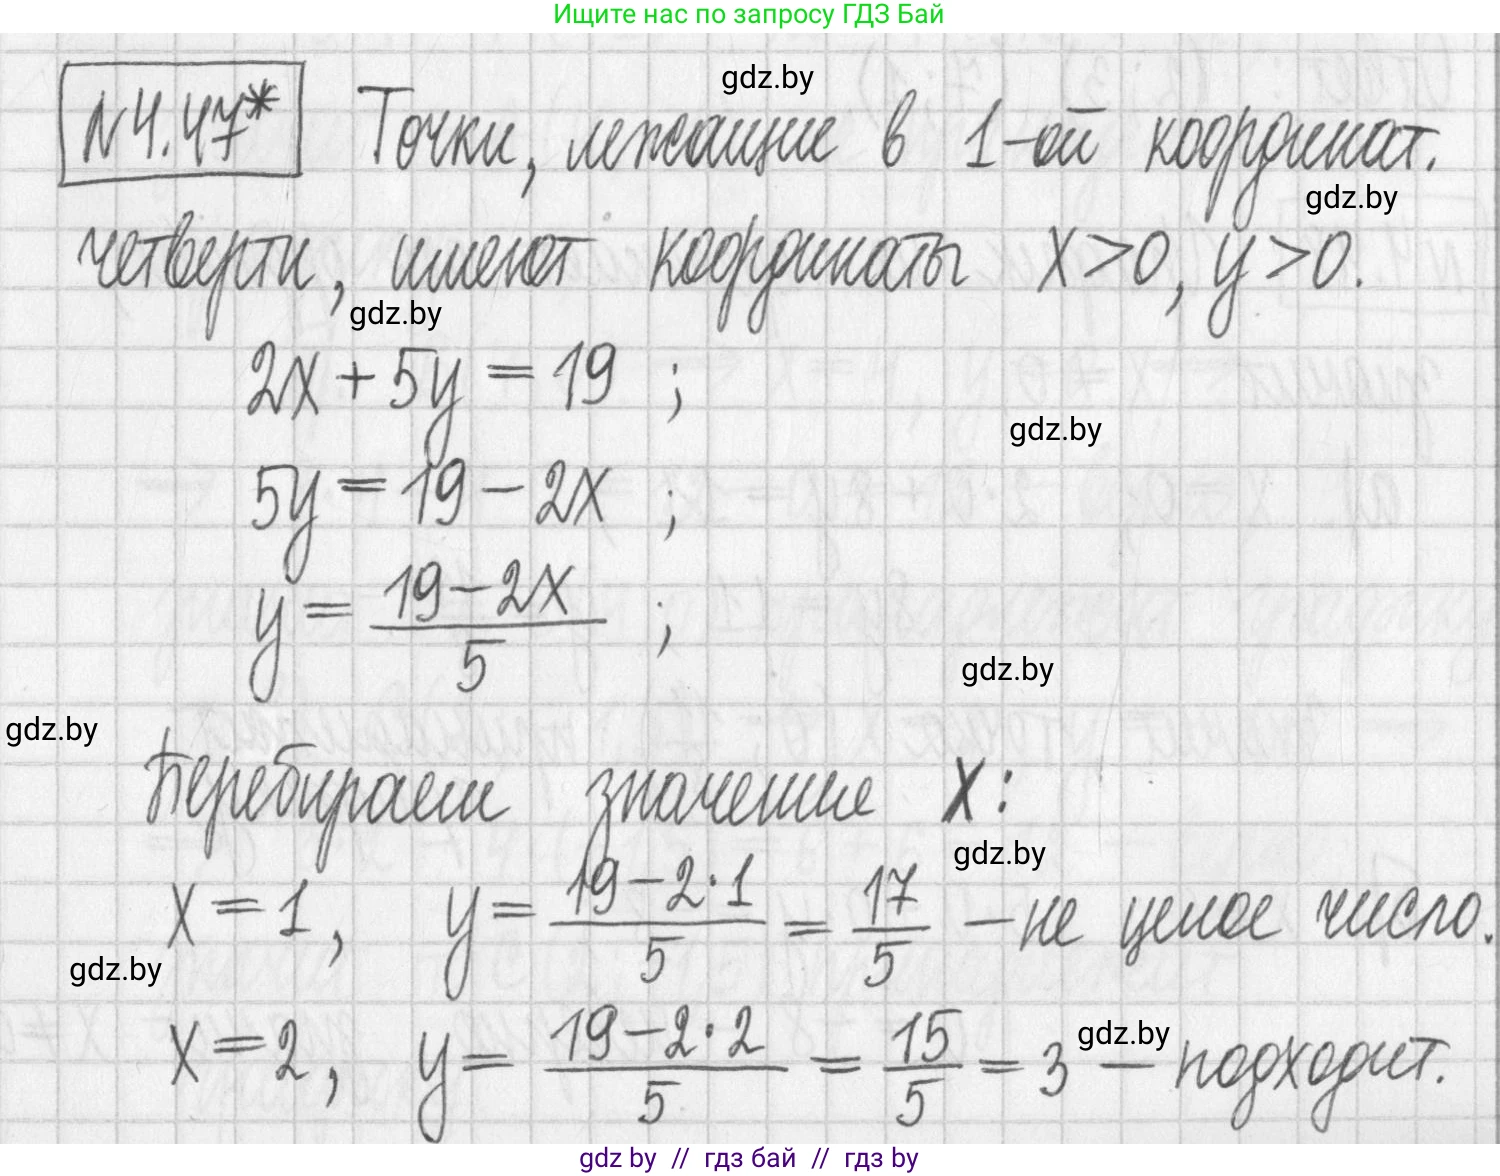 Ищите нас по запросу ГДЗ Бай
gdz.by
N4.47* Точки, лежащие в 1-ой координат.
gdz.by
четверти, имеют координаты x>0, y>0.
gdz.by
2x + 5y = 19 ;
gdz.by
5y = 19 - 2x ;
y = \frac{19 - 2x}{5} ;
gdz.by
gdz.by
Перебираем значение x:
gdz.by
x = 1, y = \frac{19 - 2·1}{5} = \frac{17}{5} — не целое число.
gdz.by
gdz.by
x = 2, y = \frac{19 - 2·2}{5} = \frac{15}{5} = 3 — подходит.
gdz by // гдз бай // гдз by